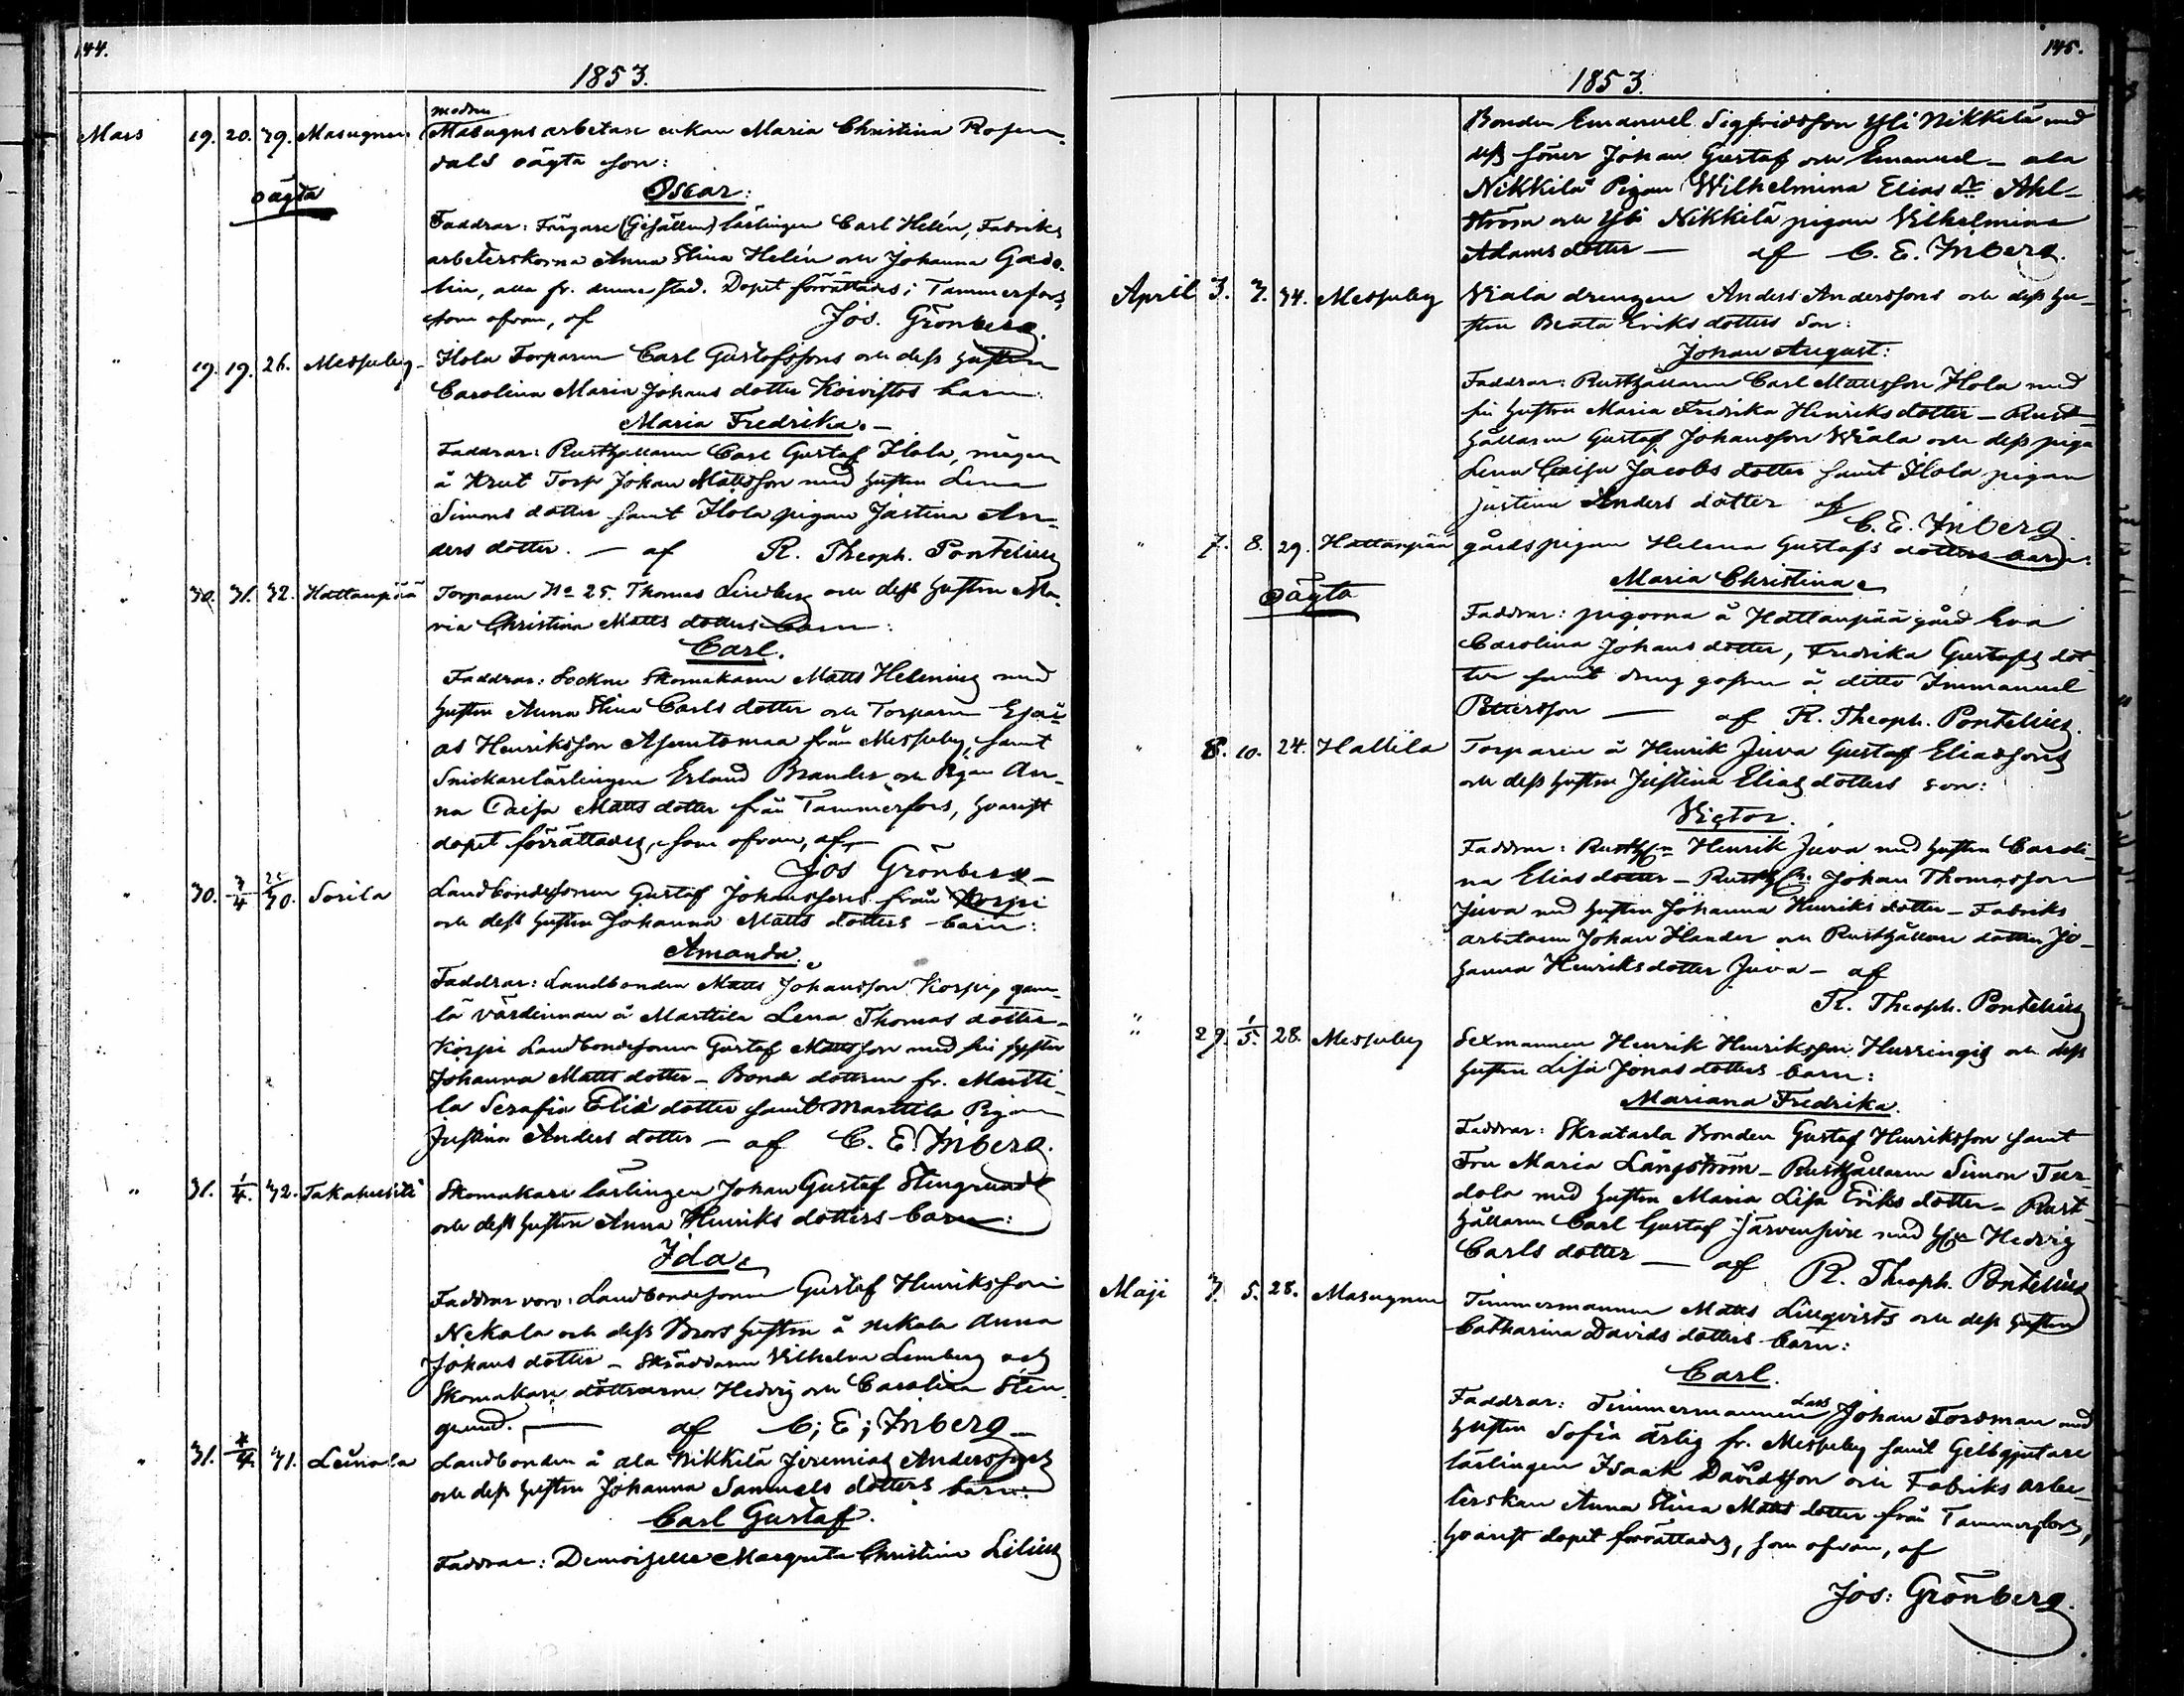 144.
1853.
modren
Mars 19. 20. 39. Masugnen Masugns arbetare enkan Maria Christina Rosen-
dals oägta son:
oägta
Oscar:
Faddrar: Färgare (Gesällen) lärlingen Carl Helén, Fabriks
arbeterskorna Anna Stina Helén och Johanna Gado-
lin, alla fr. denne stad. Dopet förrättades i Tammerfors
som ofvan, af Jos. Grönberg.
" 19. 19. 26. Messuby Ilola Torparen Carl Gustafssons och dess hustru
Carolina Maria Johans dotter Koivistos barn:
Maria Fredrika. —
Faddrar: Rusthållaren Carl Gustaf Ilola, mågen
å Krut Torp Johan Mattsson med hustru Lena
Simons dotter samt Ilola pigan Justina An-
ders dotter. — af R. Theoph. Pontelius
" 30. 31. 32. Hattanpää Torparen No 25. Thomas Lindberg och dess hustru Ma-
ria Christina Matts dotters barn:
Carl.
Faddrar: Sockne Skomakaren Matts Helening med
hustru Anna Stina Carls dotter och Torparen Esai-
as Henriksson från Messuby, samt
Snickarelärlingen Erland Brander och Pigan An-
na Caisa Matts dotter från Tammerfors, hvarest
dopet förrättades, som ofvan, af
Jos Grönberg —
" 30. 3/4 25/30. Sorila Landbondesonen Gustaf Johanssons från Korpi
och dess hustru Johanna Matts dotters barn:
Amanda.
Faddrar: Landbonden Matts Johansson Korpi, gam-
la värdinnan å Marttila Lena Thomas dotter —
Korpi Landbondesonen Gustaf Mattsson med sin syster
Johanna Matts dotter — Bonde dottren fr. Martti-
la Serafia Elia dotter samt Marttila Pigan
Justina Anders dotter — af C. E. Inberg.
" 31. 1/4. 32. Takahuhti Skomakare lärlingen Johan Gustaf Stengrunds
och dess hustru Anna Henriks dotters barn:
Ida
Faddrar voro: Landbondesonen Gustaf Henriksson
Nekala och dess Brors hustru å Nekala Anna
Johans dotter — Skräddaren Vilhelm Lemberg och
Skomakare döttrarne Hedvig och Carolina Sten-
grund. — af C; E; Inberg —
" 31. 4/4. 31. Leinola Landbonden å ala Nikkilä Jeremias Anderssons
och dess hustru Johanna Samuels dotters barn:
Carl Gustaf.
Faddrar: Demoiselle Margreta Christina Lilius
145.
1853.
Bonden Emanuel Sigfridsson Yli Nikkilä med
dess söner Johan Gustaf och Emanuel — ala
Nikkilä Pigan Wilhelmina Elias dr Ahl-
ström och Yli Nikkilä pigan Vilhelmina
Adams dotter — af C. E. Inberg.
April 3. 3. 34. Messuby Viala drengen Anders Anderssons och dess hu-
stru Beata Eriks dotters Son:
Johan August:
Faddrar: Rusthållaren Carl Mattsson Ilola med
sin hustru Maria Fredrika Henriks dotter — Rust-
hållaren Gustaf Johansson Viala och dess piga
Lena Caisa Jacobs dotter samt Ilola pigan
Justina Anders dotter af
C. E. Inberg
" 7. 8. 29. Hattanpää gårds pigan Helena Gustafs dotters barn:
oägta
Maria Christina
Faddrar: pigorna å Hattanpää gård Eva
Carolina Johans dotter, Fredrika Gustafs dot-
ter samt dreng gossen å ditto Immanuel
Pettersson — af R. Theoph. Pontelius.
" 8. 10. 24. Hallila Torparen å Henrik Juva Gustaf Eliassons
och dess hustru Justina Elias dotters son:
Victor.
Faddrar: Rusth:n Henrik Juva med hustru Caroli-
na Elias dotter — Rusth:n Johan Thomasson
Juva med hustru Johanna Henriks dotter — Fabriks
arbetaren Johan Hlander och Rusthållare dottren Jo-
hanna Henriksdotter Juva — af
R. Theoph. Pontelius
" 29. 1/5. 28. Messuby Sexmannen Henrik Henriksson Hurringis och dess
hustru Lisa Jonas dotters barn:
Mariana Fredrika.
Faddrar: Skratarla Bonden Gustaf Henriksson samt
Fru Maria Långström — Rusthållaren Simon Tur-
dola med hustru Maria Lisa Eriks dotter — Rust-
hållaren Carl Gustaf Järvensivu med h:u Hedvig
Carls dotter — af R. Theoph. Pontelius
Maji 3. 5. 28. Masugnen Timmermannen Matts Lillqvists och dess hustru
Catharina Davids dotters barn:
Carl.
Faddrar: Timmermannen Lars Johan Fordman med
hustru Sofia ärlig fr. Messuby samt Gelbgjutare
lärlingen Isaak Davidsson och Fabriks arbe-
terskan Anna Stina Matts dotter från Tammerfors,
hvarest dopet förrättades, som ofvan, af
Jos: Grönberg.